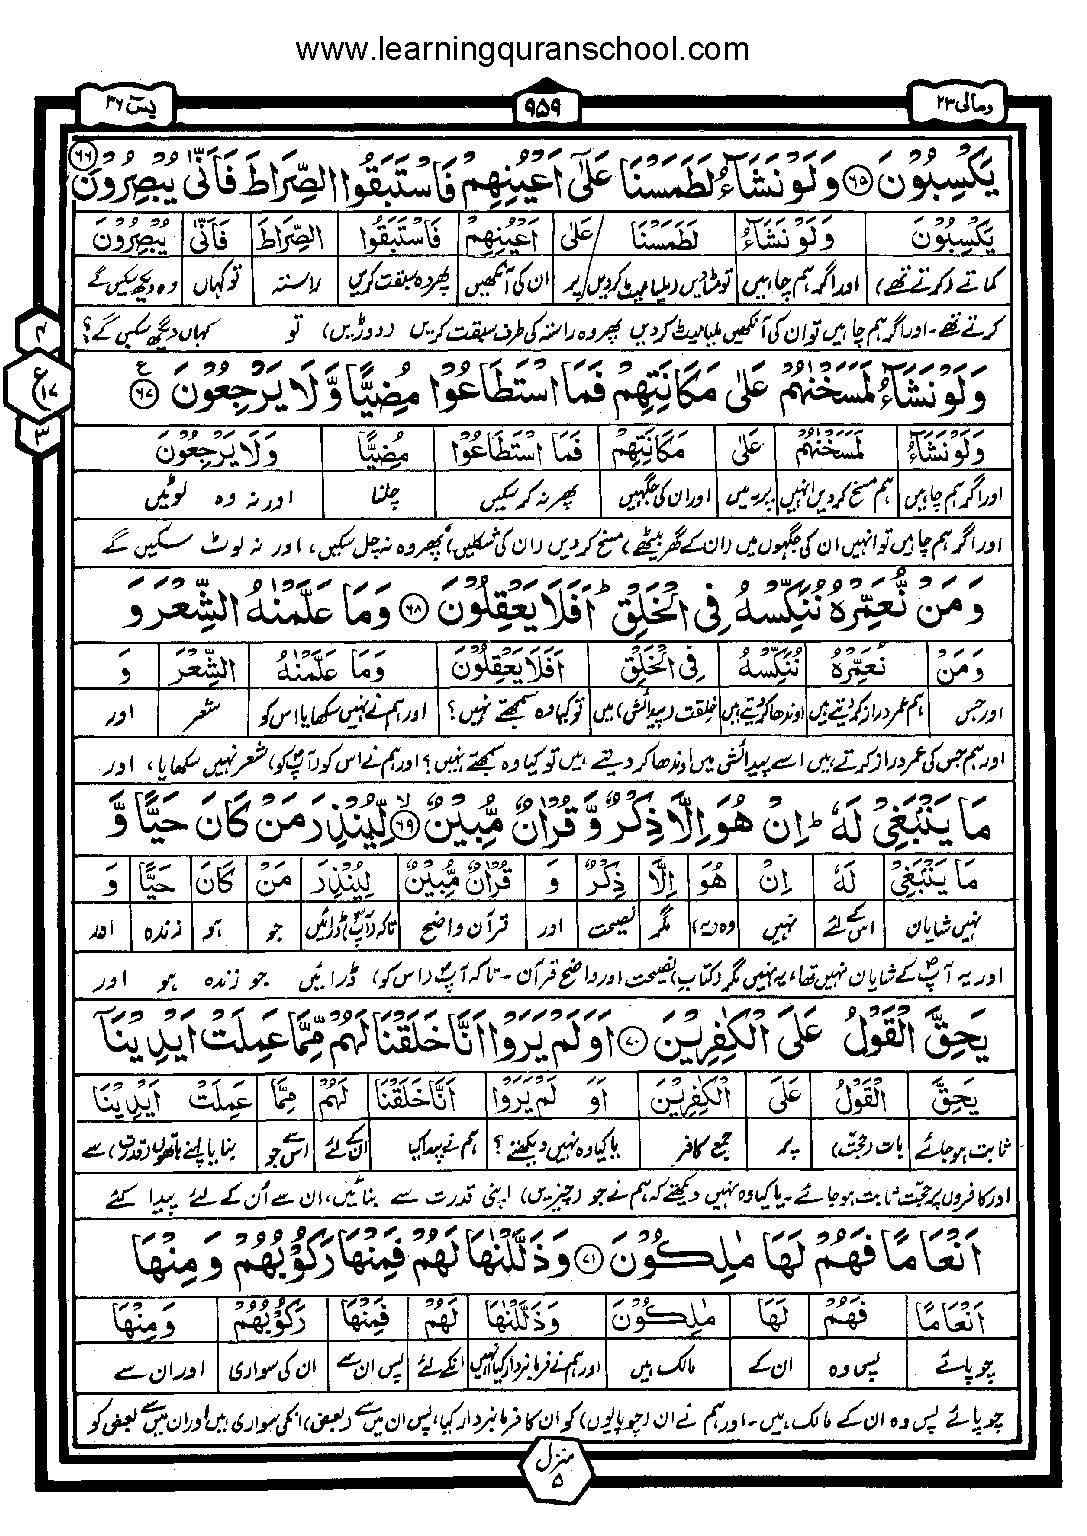 www.learningquranschool.com
ومالی ۲۳
۹۵۹
یٰسٓ ۳۶
يَكْسِبُوْنَ ۶۵ وَلَوْ نَشَآءُ لَطَمَسْنَا عَلٰٓى اَعْيُنِهِمْ فَاسْتَبَقُوا الصِّرَاطَ فَاَنّٰى يُبْصِرُوْنَ ۶۶
يَكْسِبُوْنَ وَلَوْ نَشَآءُ لَطَمَسْنَا عَلٰٓى اَعْيُنِهِمْ فَاسْتَبَقُوا الصِّرَاطَ فَاَنّٰى يُبْصِرُوْنَ
کماتے (کرتے تھے) اور اگر ہم چاہیں تو مٹا دیں (ملیامیٹ کردیں) پر ان کی آنکھیں پھر وہ سبقت کریں راستہ تو کہاں وہ دیکھ سکیں گے
کرتے تھے۔ اور اگر ہم چاہیں تو ان کی آنکھیں ملیامیٹ کردیں پھر وہ راستہ کی طرف سبقت کریں (دوڑیں) تو کہاں دیکھ سکیں گے؟
۴
ع ۱۷
۳
وَلَوْ نَشَآءُ لَمَسَخْنٰهُمْ عَلٰى مَكَانَتِهِمْ فَمَا اسْتَطَاعُوْا مُضِيًّا وَّلَا يَرْجِعُوْنَ ۶۷ ع
وَلَوْ نَشَآءُ لَمَسَخْنٰهُمْ عَلٰى مَكَانَتِهِمْ فَمَا اسْتَطَاعُوْا مُضِيًّا وَلَا يَرْجِعُوْنَ
اور اگر ہم چاہیں ہم مسخ کردیں انہیں پر۔ میں اور ان کی جگہیں پھر نہ کرسکیں چلنا اور نہ وہ لوٹیں
اور اگر ہم چاہیں تو انہیں ان کی جگہوں میں (ان کے گھر بیٹھے) مسخ کردیں (ان کی شکلیں) پھر وہ نہ چل سکیں، اور نہ لوٹ سکیں گے
وَمَنْ نُّعَمِّرْهُ نُنَكِّسْهُ فِى الْخَلْقِ ؕ اَفَلَا يَعْقِلُوْنَ ۶۸ وَمَا عَلَّمْنٰهُ الشِّعْرَ وَ
وَمَنْ نُعَمِّرْهُ نُنَكِّسْهُ فِى الْخَلْقِ اَفَلَا يَعْقِلُوْنَ وَمَا عَلَّمْنٰهُ الشِّعْرَ وَ
اور جس ہم عمر دراز کردیتے ہیں اوندھا کردیتے ہیں خلقت (پیدائش) میں تو کیا وہ سمجھتے نہیں؟ اور ہم نے نہیں سکھایا اس کو شعر اور
اور ہم جس کی عمر دراز کرتے ہیں اسے پیدائش میں اوندھا کردیتے ہیں تو کیا وہ سمجھتے نہیں؟ اور ہم نے اس کو (آپؐ کو) شعر نہیں سکھایا، اور
مَا يَنْۢبَغِىْ لَهٗ ؕ اِنْ هُوَ اِلَّا ذِكْرٌ وَّ قُرْاٰنٌ مُّبِيْنٌ ۙ ۶۹ لِّيُنْذِرَ مَنْ كَانَ حَيًّا وَّ
مَا يَنْۢبَغِىْ لَهٗ اِنْ هُوَ اِلَّا ذِكْرٌ وَ قُرْاٰنٌ مُّبِيْنٌ لِيُنْذِرَ مَنْ كَانَ حَيًّا وَّ
نہیں شایان اس کے لئے نہیں وہ (یہ) مگر نصیحت اور قرآن واضح تاکہ (آپؐ) ڈرائیں جو ہو زندہ اور
اور یہ آپؐ کے شایان نہیں تھا، یہ نہیں مگر (کتاب) نصیحت اور واضح قرآن۔ تاکہ آپؐ (اس کو) ڈرائیں جو زندہ ہو اور
يَحِقَّ الْقَوْلُ عَلَى الْكٰفِرِيْنَ ۷۰ اَوَلَمْ يَرَوْا اَنَّا خَلَقْنَا لَهُمْ مِّمَّا عَمِلَتْ اَيْدِيْنَاۤ
يَحِقَّ الْقَوْلُ عَلَى الْكٰفِرِيْنَ اَوَ لَمْ يَرَوْا اَنَّا خَلَقْنَا لَهُمْ مِمَّا عَمِلَتْ اَيْدِيْنَا
ثابت ہوجائے بات (حجت) پر جمع کافر یا کیا وہ نہیں دیکھتے؟ ہم نے پیدا کیا ان کے لئے اس سے جو بنایا اپنے ہاتھوں (قدرت) سے
اور کافروں پر حجت ثابت ہوجائے۔ یا کیا وہ نہیں دیکھتے کہ ہم نے جو (چیزیں) اپنی قدرت سے بنائیں، ان سے اُن کے لئے پیدا کئے
اَنْعَامًا فَهُمْ لَهَا مٰلِكُوْنَ ۷۱ وَذَلَّلْنٰهَا لَهُمْ فَمِنْهَا رَكُوْبُهُمْ وَمِنْهَا
اَنْعَامًا فَهُمْ لَهَا مٰلِكُوْنَ وَذَلَّلْنٰهَا لَهُمْ فَمِنْهَا رَكُوْبُهُمْ وَمِنْهَا
چوپائے پس وہ ان کے مالک ہیں اور ہم نے فرمانبردار کیا انہیں انکے لئے پس ان سے ان کی سواری اور ان سے
چوپائے پس وہ ان کے مالک ہیں۔ اور ہم نے ان (چوپایوں) کو ان کا فرمانبردار کیا، پس ان میں سے (بعض) انکی سواری ہیں اور ان میں سے بعض کو
منزل ۵